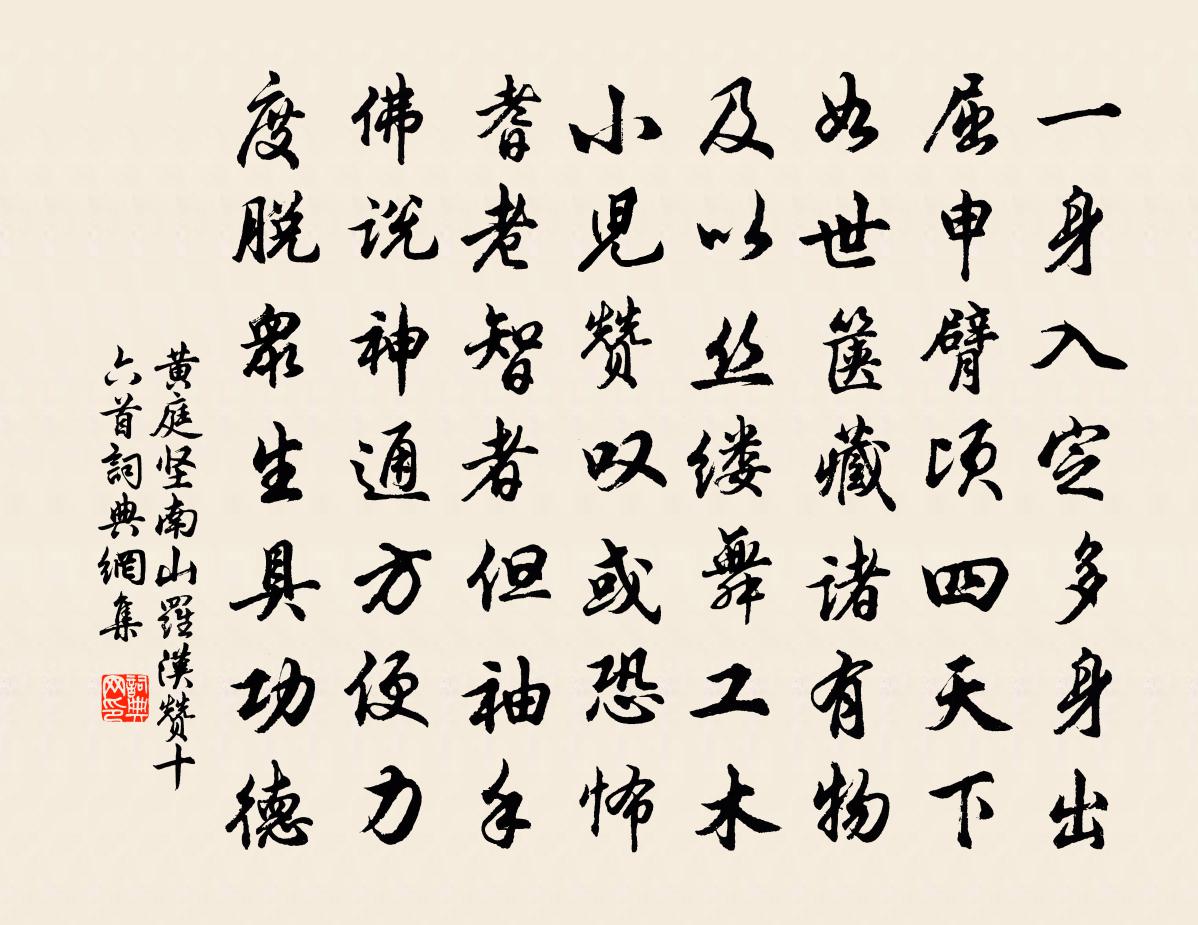 一身入定多身出
屈申臂顷四天下
如世箧藏诸有物
及以丝缕舞工木
小児赞叹或恐怖
耆老智者但袖手
佛说神通方便力
度脱眾生具功德
黄庭坚南山羅漢赞十
六首詞典網集
詞典
网印